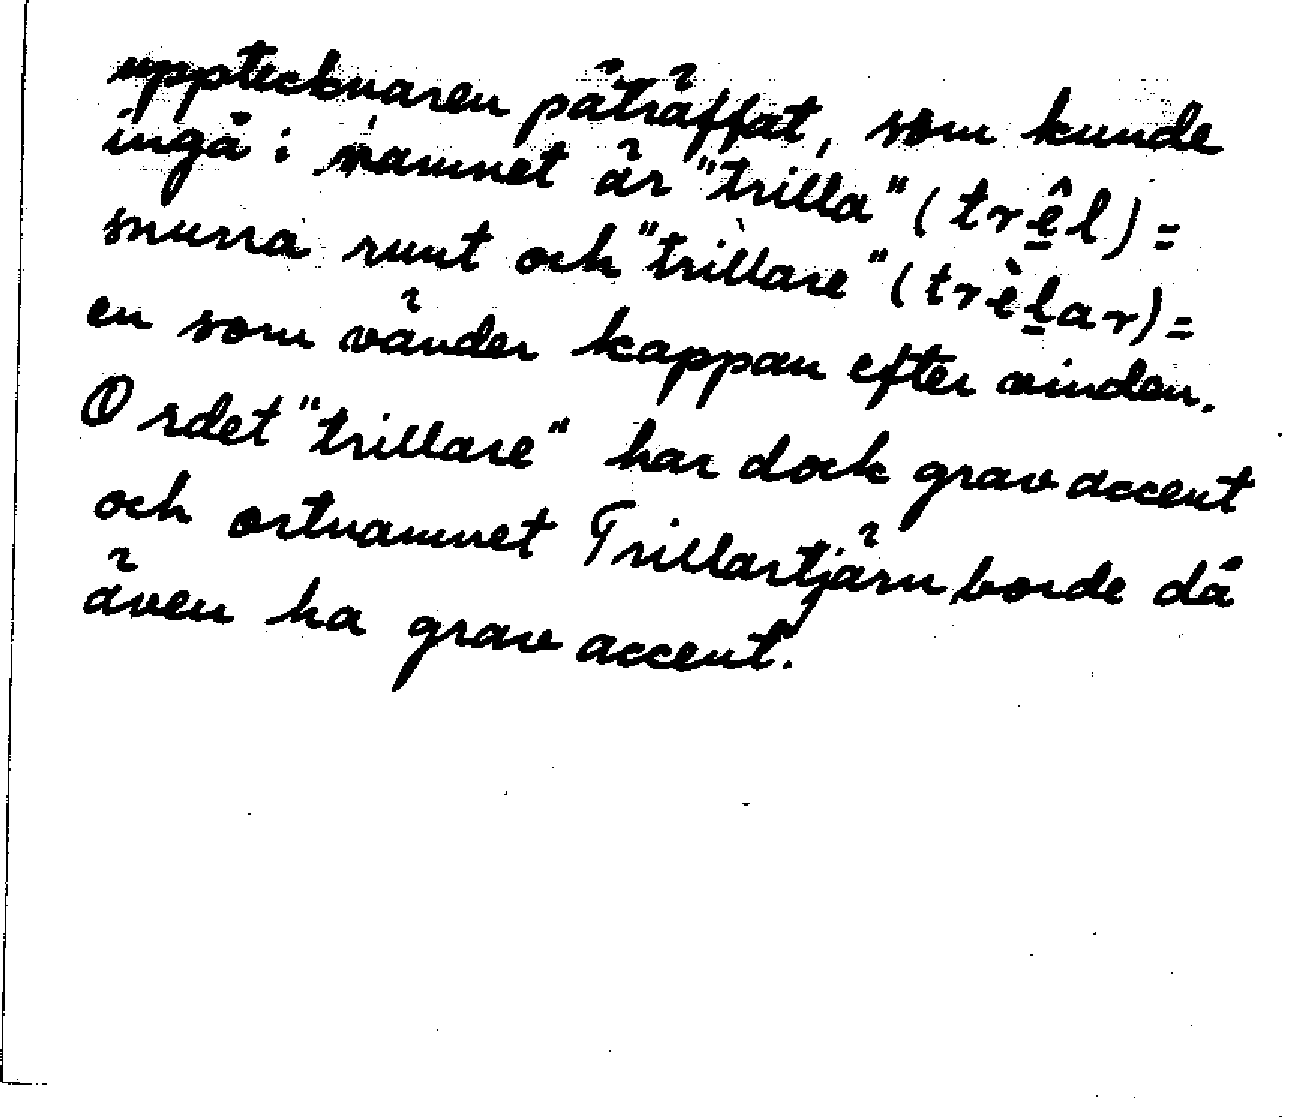 upptecknaren påträffat, som kunde
ingå i namnet är "trilla" (trê̱l) =
snurra runt och "trillare" (trèḻar) =
en som vänder kappan efter vinden.
Ordet "trillare" har dock grav accent
och ortnamnet Trillartjärn borde då
även ha grav accent.